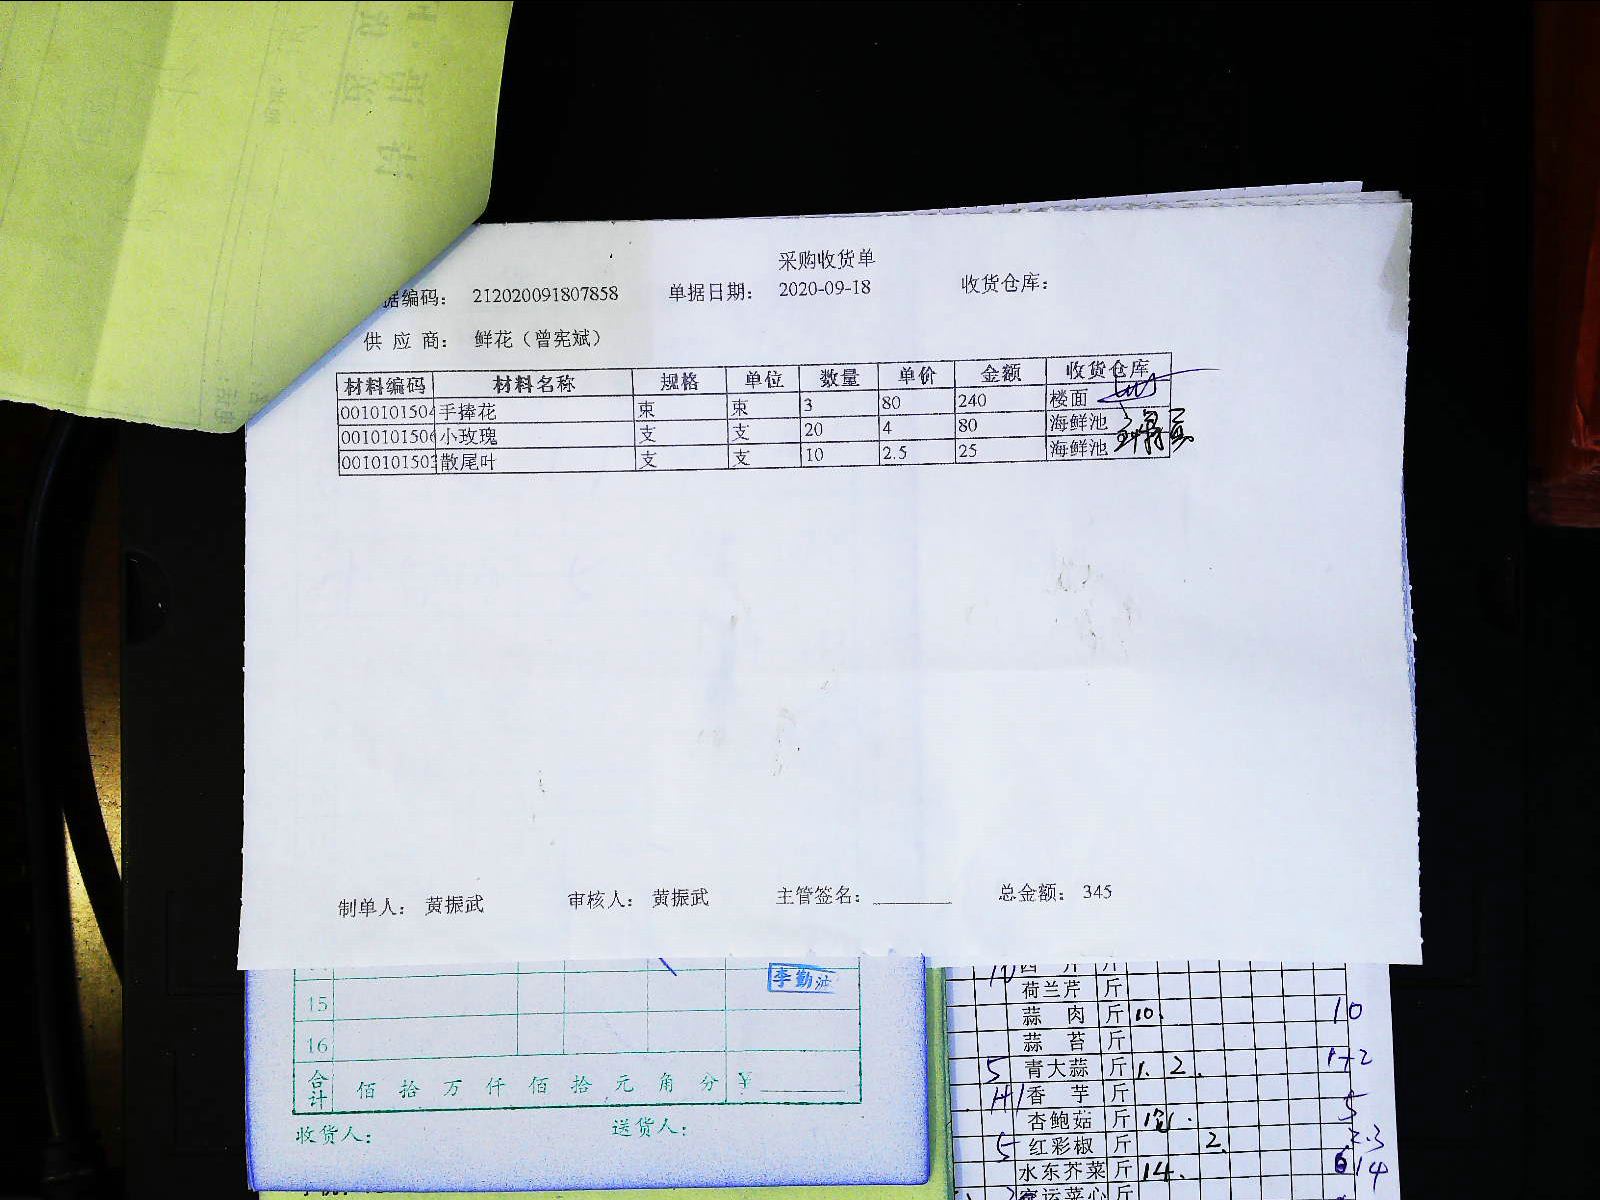 采购收货单
据编码： 212020091807858 单据日期： 2020-09-18 收货仓库：
供 应 商： 鲜花（曾宪斌）
材料编码 材料名称 规格 单位 数量 单价 金额 收货仓库
0010101504 手捧花 束 束 3 80 240 楼面
0010101506 小玫瑰 支 支 20 4 80 海鲜池
001010150 散尾叶 支 支 10 2.5 25 海鲜池
制单人： 黄振武 审核人： 黄振武 主管签名： 总金额： 345
李勤
15
16
合计 佰 拾 万 仟 佰 拾 元 角 分 ¥
收货人： 送货人：
荷兰芹 斤
蒜 肉 斤 10. 10
蒜 苔 斤
5 青大蒜 斤 1. 2. 1+2
香 芋 斤
杏鲍菇 斤 5
5 红彩椒 斤 2. 2.3
水东芥菜 斤 14. 14